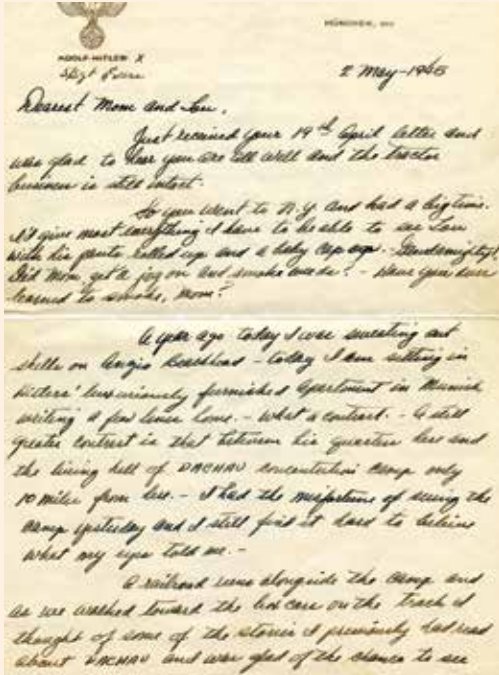 MÜNCHEN, DEN
ADOLF HITLER X
S/Sgt Evers
2 May-1945
Dearest Mom and Lou,
Just received your 19th April letter and
was glad to hear you are all well and the tractor
business is still intact.
So you went to N.Y. and had a big time.
I'd give most everything I have to be able to see Lou
with his pants rolled up and a baby cap on. -
Did Mom get a jag on and smoke - Have you ever
learned to smoke, Mom?
A year ago today I was sweating out
shells on Anzio Beachhead - today I am sitting in
Hitlers' luxuriously furnished apartment in Munich
writing a few lines home. - What a contrast. - A still
greater contrast is that between his quarters here and
the living hell of DACHAU concentration camp only
10 miles from here. - I had the misfortune of seeing the
camp yesterday and I still find it hard to believe
what my eyes told me. -
A railroad runs alongside the camp and
as we walked toward the box cars on the track I
thought of some of the stories I previously had read
about DACHAU and was glad of the chance to see